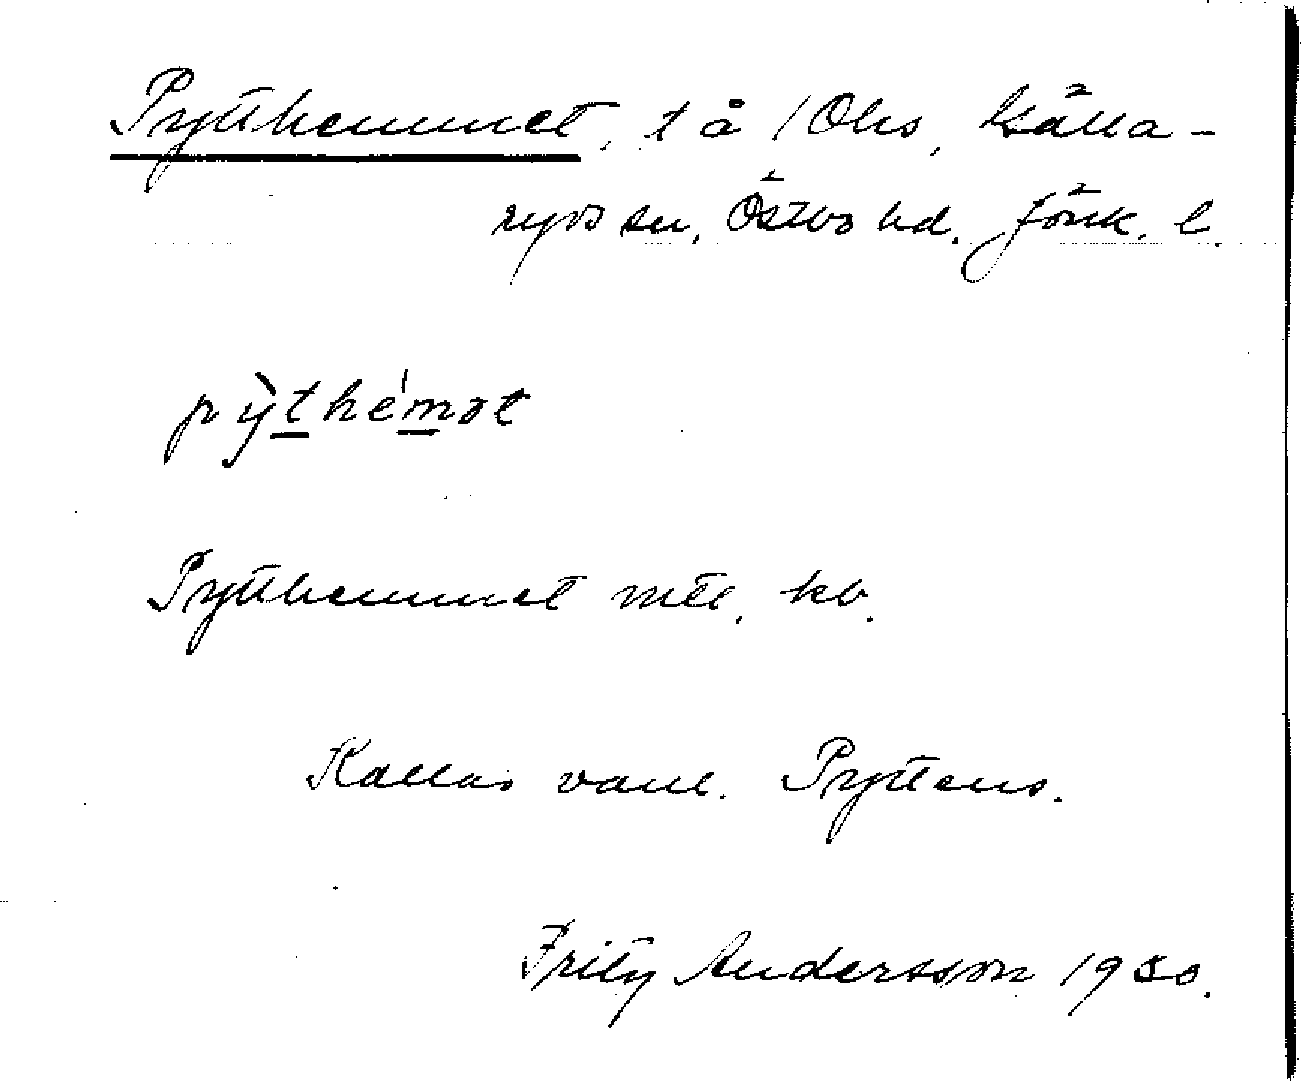 Pytthemmet, t å / Ohs, Källa-
ryds sn, Östbo hd. Jönk. l.
pỳt̲hém̲ət
Pytthemmet mtl. kb.
Kallas vanl. Pyttens.
Frity Andersson 1930.